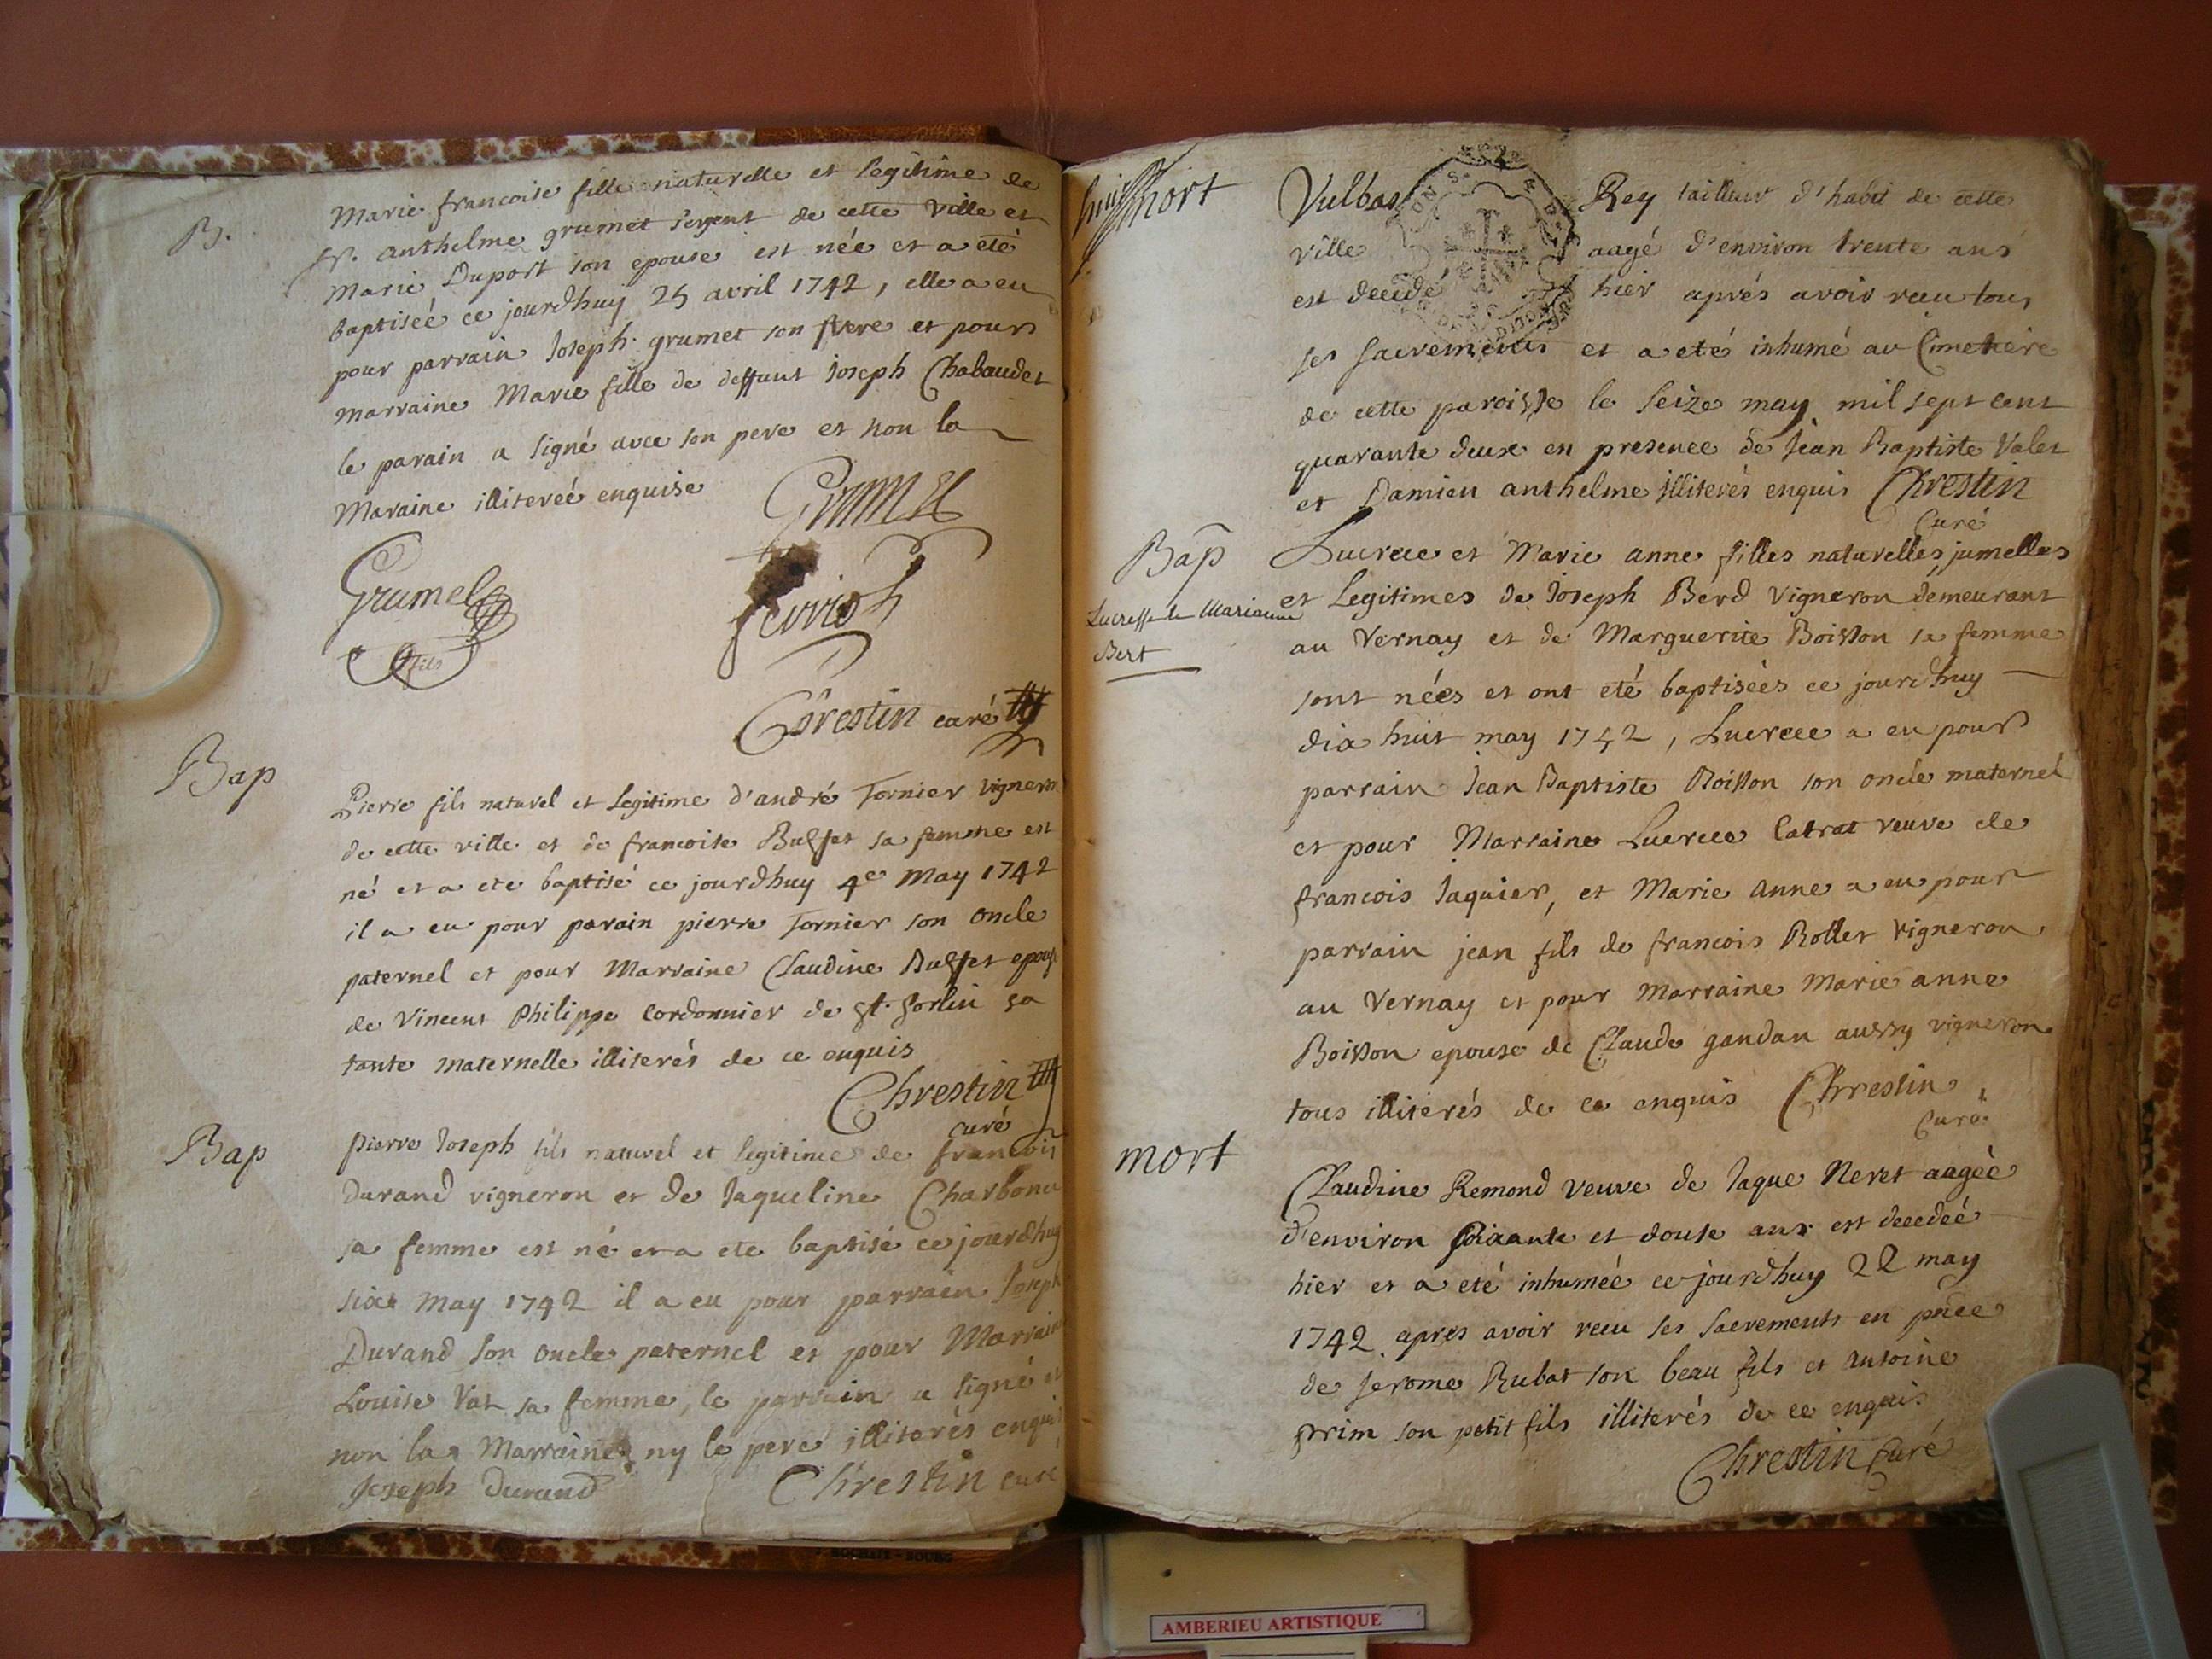 B.
Marie francoise fille naturelle et legitime de
sr. anthelme grumet sergent de cette ville et
marie Duport son epouse est née et a eté
baptiseé ce jourdhuy 25 avril 1742, elle a eu
pour parrain Joseph grumet son frere et pour
marraine Marie fille de deffunt Joseph Chabaudet
le parain a signé avec son pere et non la
Maraine illitereé enquise
Grumet
Grumet
fils
Chrestin curé
Bap
Pierre fils naturel et Legitime d'andré Tornier vigneron
de cette ville et de francoise Buffet sa femme est
né et a ete baptisé ce jourdhuy 4e May 1742
il a eu pour parain pierre Tornier son oncle
paternel et pour Marraine Claudine Buffet epouse
de Vincent Philippe Cordonnier de st. Sorlin sa
tante maternelle illiterés de ce enquis
Chrestin
curé
Bap
pierre Joseph fils naturel et legitime de francois
Durand vigneron et de Jaqueline Charbonu
sa femme est né et a ete baptisé ce jourdhuy
six May 1742 il a eu pour parrain Joseph
Durand son oncle paternel et pour Marraine
Louise Vat sa femme, le parrain a signé et
non la Marraine ny le pere illiterés enquis
Joseph Durand
Chrestin curé
mort
Vulbas Rey tailleur d'habit de cette
ville aagé d'environ trente ans
est decedé hier aprés avoir receu tous
ses sacrements et a eté inhumé au Cimetiere
de cette paroisse le seize may mil sept cent
quarante deux en presence de Jean Baptiste Valet
et Damien anthelme illiterés enquis Chrestin
Curé
Bap
Lucresse et Marianne
Bert
Lucrece et Marie anne filles naturelles, jumelles
et Legitimes de Joseph Berd vigneron demeurant
au Vernay et de Marguerite Boisson sa femme
sont nées et ont eté baptisées ce jourdhuy
dix huit may 1742, Lucrece a eu pour
parrain Jean Baptiste Boisson son oncle maternel
et pour Marraine Lucrece Catrat veuve de
francois Jaquier, et Marie anne a eu pour
parrain jean fils de francois Rollet vigneron
au Vernay et pour marraine Marie anne
Boisson epouse de Claude gandan aussy vigneron
tous illiterés de ce enquis Chrestin
Curé
mort
Claudine Remond veuve de Jaque Neret aagée
d'environ soixante et douse ans est decedeé
hier et a eté inhumeé ce jourdhuy 22 may
1742 apres avoir receu ses sacrements en pnce
de Jerome Rubat son beau fils et antoine
prim son petit fils illiterés de ce enquis
Chrestin Curé
AMBERIEU ARTISTIQUE